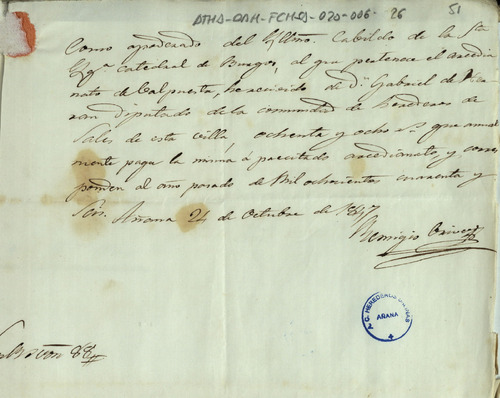 ATHA-DAH-FCHSA-020-006-26
51
Como apoderado del Yltmo. Cabildo de la Sta
Ygª catedral de Burgos, al que pertenece el arcedia
nato de Valpuesta, he recivido de Dn Gabriel de
ran Diputado de la comunidad de herederos de
Sales de esta villa, ochenta y ocho rs que anual
mente paga la misma á precitado arcedianato, y corres
ponden al año pasado de Mil ochocientos cuarenta y
Seis. Añana 24 de Octubre de 1847
Remigio
C. HEREDEROS
AÑANA
Son 88